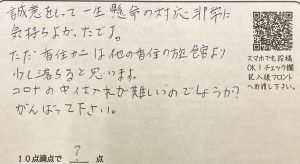 誠意をもって一生懸命の対応非常に
気持ちよかったです。
ただ着住ナニは他の着住の旅館より
少し落ちると思います。
コロナの中 仕入れが難しいのでしょうか?
がんばって下さい。
10点満点で ? 点
スマホでも投稿
OK!チェック欄
記入後フロント
へお渡し下さい。